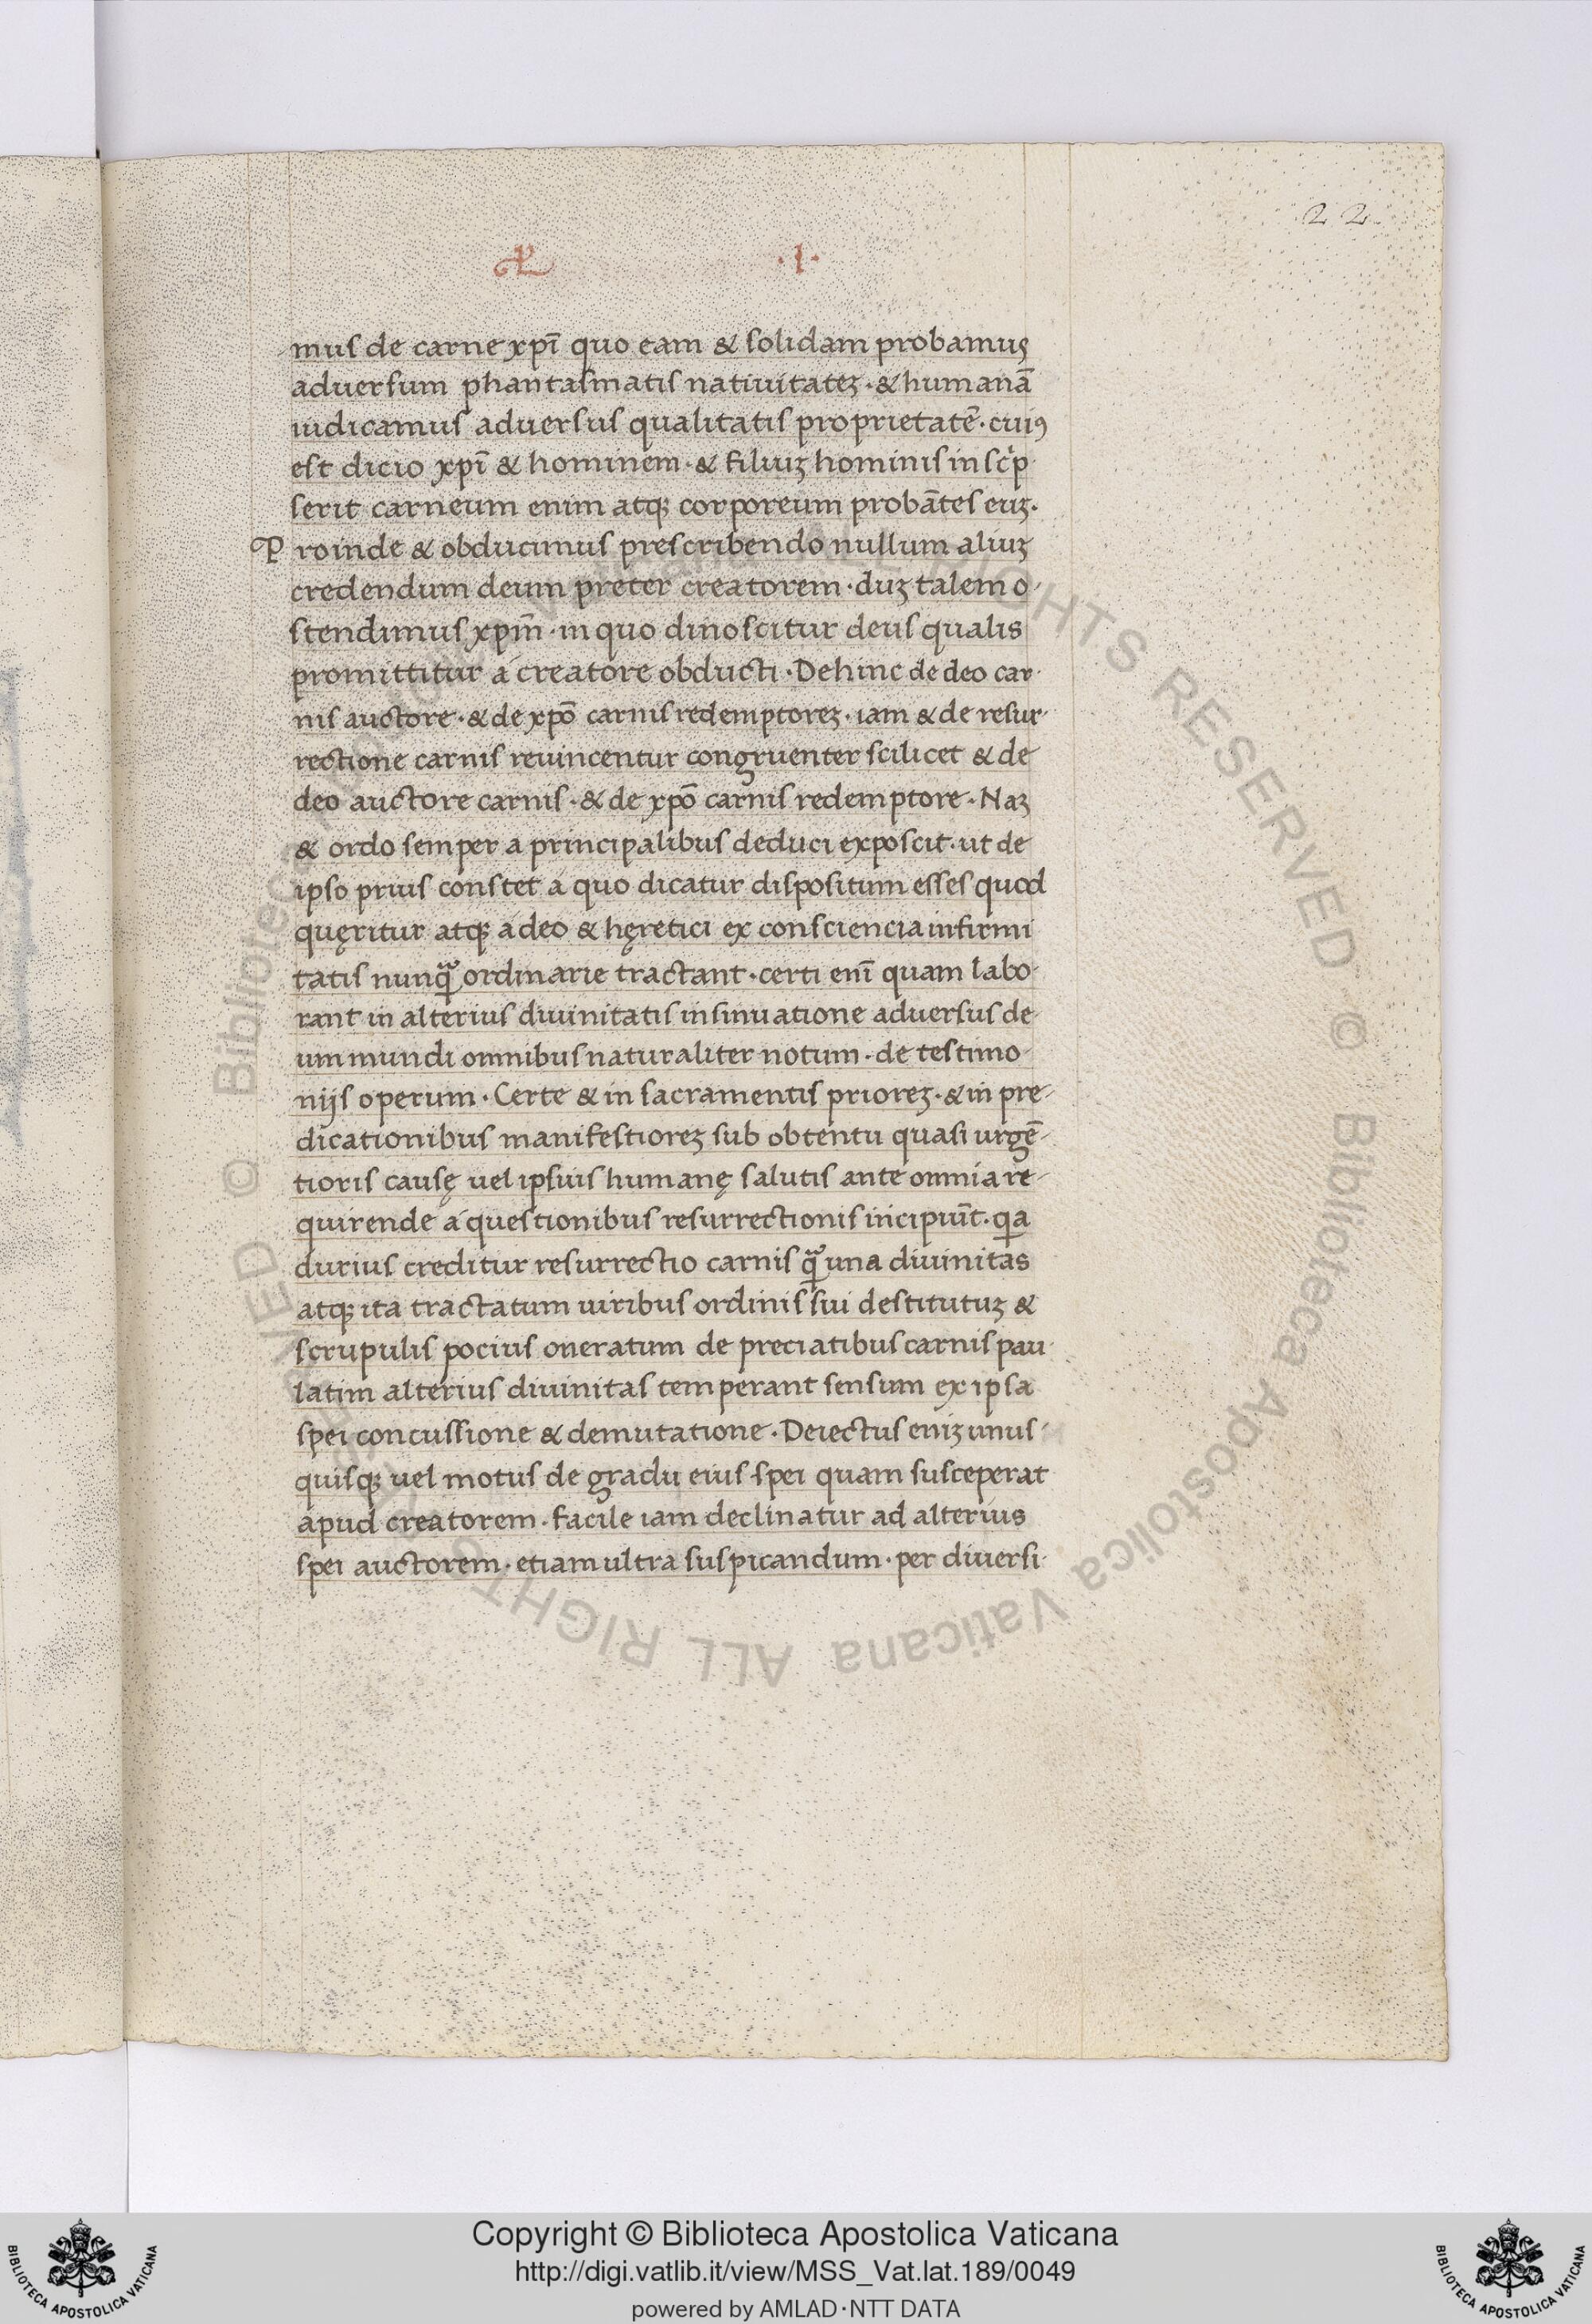 22
·I·
mus de carne xpı̄ quo eam & solidam probamuꝫ
aduersum phantasmatis natiuitateꝫ · & humanā
iudicamus aduersus qualitatis proprietatē · cuiꝰ
est dicio xpı̄ & hominem · & filiuꝫ hominis in scⁱp
serit carneum enim atqꝫ corporeum probātes euꝫ ·
Proinde & obducimus prescribendo nullum aliuꝫ
credendum deum preter creatorem · duꝫ talem o-
stendimus xpm̄ · in quo dinoscitur deus qualis
promittitur a creatore obducti · Dehinc de deo car-
nis auctore · & de xpō carnis redemptoreꝫ · iam & de resur-
rectione carnis reuincentur congruenter scilicet & de
deo auctore carnis · & de xpō carnis redemptore · Naꝫ
& ordo semper a principalibus deduci exposcit · ut de
ipso prius constet a quo dicatur dispositum esses quod
quęritur atqꝫ adeo & hęretici ex consciencia infirmi
tatis nunqᷓ ordinarie tractant · certi enı̄ quam labo-
rant in alterius diuinitatis insinuatione aduersus de
um mundi omnibus naturaliter notum · de testimo-
nijs operum · Certe & in sacramentis prioreꝫ · & in pre-
dicationibus manifestioreꝫ sub obtentu quasi urgē-
tioris causę uel ipsius humanę salutis ante omnia re-
quirende a questionibus resurrectionis incipiūt · qꝛa
durius creditur resurrectio carnis qᷓ una diuinitas
atqꝫ ita tractatum uiribus ordinis sui destitutuꝫ &
scrupulis pocius oneratum de preciatibus carnis pau-
latim alterius diuinitas temperant sensum ex ipsa
spei concussione & demutatione · Deiectus eniꝫ unus-
quisqꝫ uel motus de gradu eius spei quam susceperat
apud creatorem · facile iam declinatur ad alterius
spei auctorem · etiam ultra suspicandum · per diuersi-
© Biblioteca Apostolica Vaticana ALL RIGHTS RESERVED © Biblioteca Apostolica Vaticana ALL RIGHTS RESERVED
Copyright © Biblioteca Apostolica Vaticana
http://digi.vatlib.it/view/MSS_Vat.lat.189/0049
powered by AMLAD·NTT DATA
BIBLIOTECA APOSTOLICA VATICANA
BIBLIOTECA APOSTOLICA VATICANA